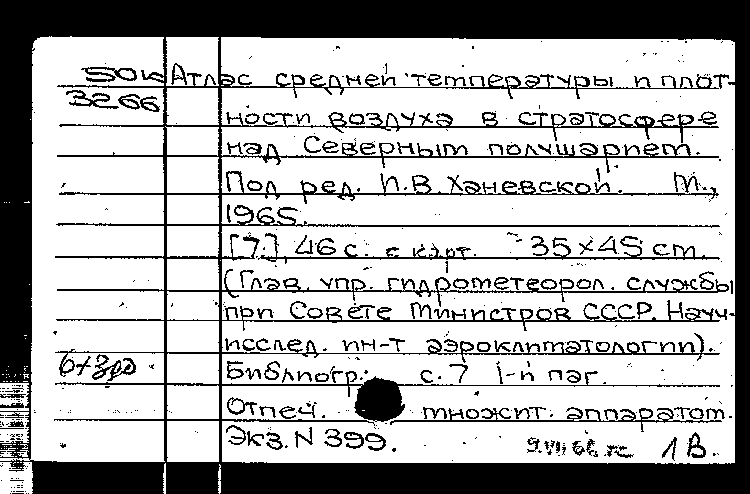 50к Атлас средней температуры и плот-
3266
ности воздуха в стратосфере
над Северным полушарием.
Под ред. И.В. Ханевской. М.,
1965.
[7], 46 с. с карт. 35×45 см.
(Глав. упр. гидрометеорол. службы
при Совете Министров СССР. Науч-
исслед. ин-т аэроклиматологии).
Библиогр.: с. 7 1-й паг.
Отпеч. множит. аппаратом.
Экз. N 399. 9.VII 66 1В.